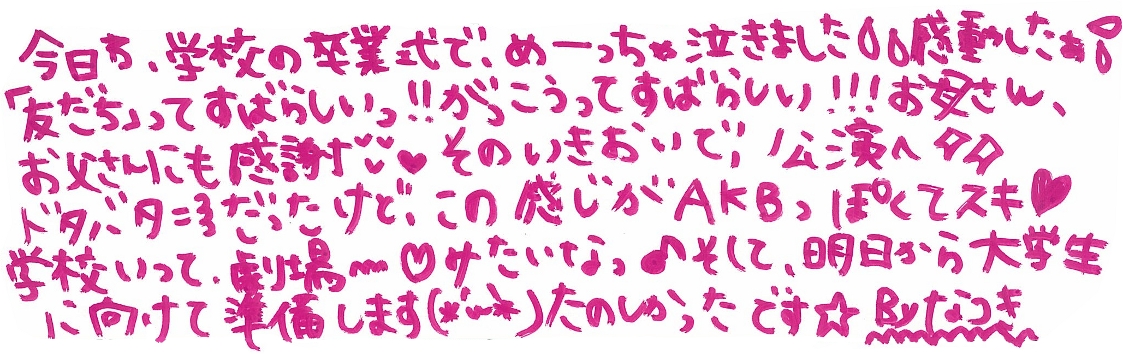 今日ゎ、学校の卒業式で、めーっちゃ泣きました感動したぁ
「友だち」ってすばらしいっ!!がっこうってすばらしい!!!お母さん、
お父さんにも感謝だ♥ そのいきおいで、公演へ タタ
ドタバタ=3だったけど、この感じがAKBっぽくてスキ♥
学校いって、劇場〜♡みたいなっ♪そして、明日から大学生
に向けて準備します(*^^*)たのしかったです☆ Byなつき